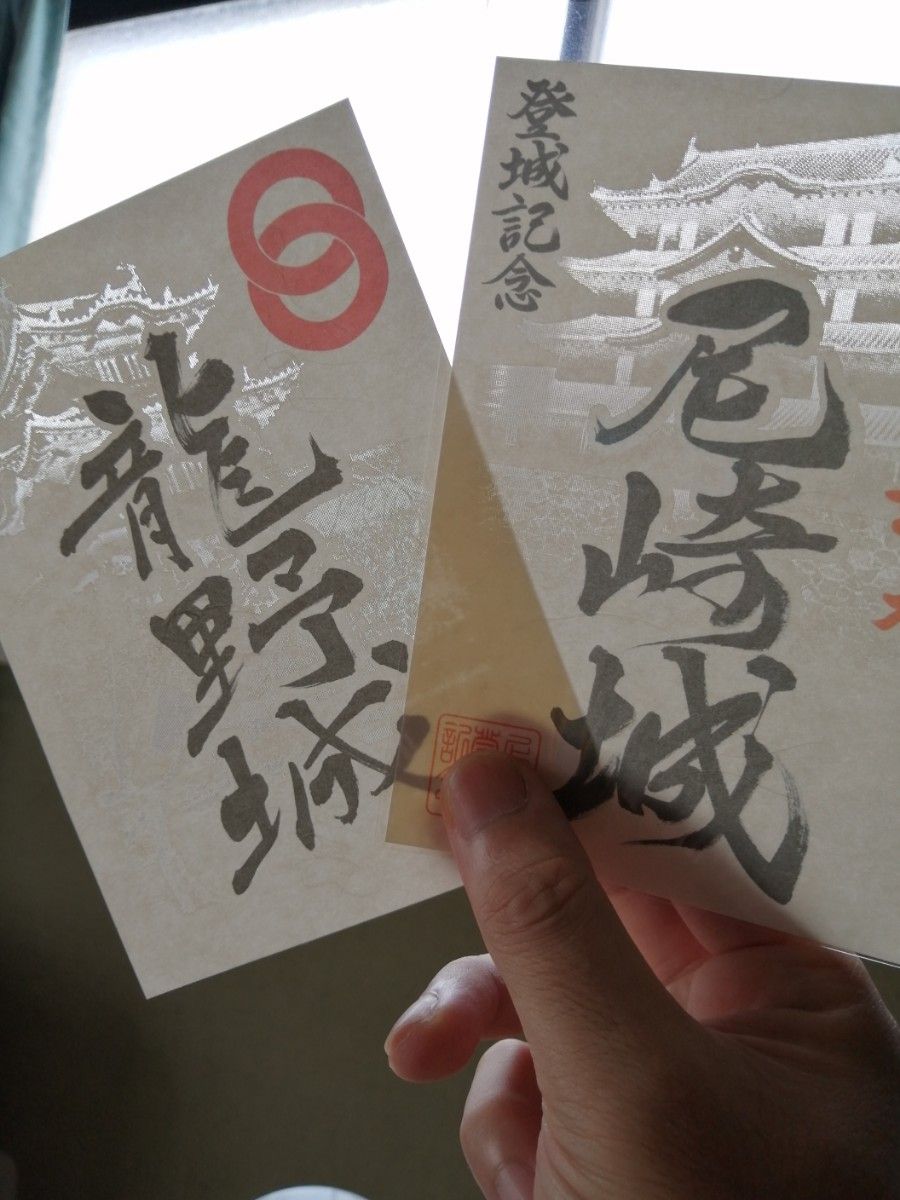 龍野城
登城記念
尼崎城